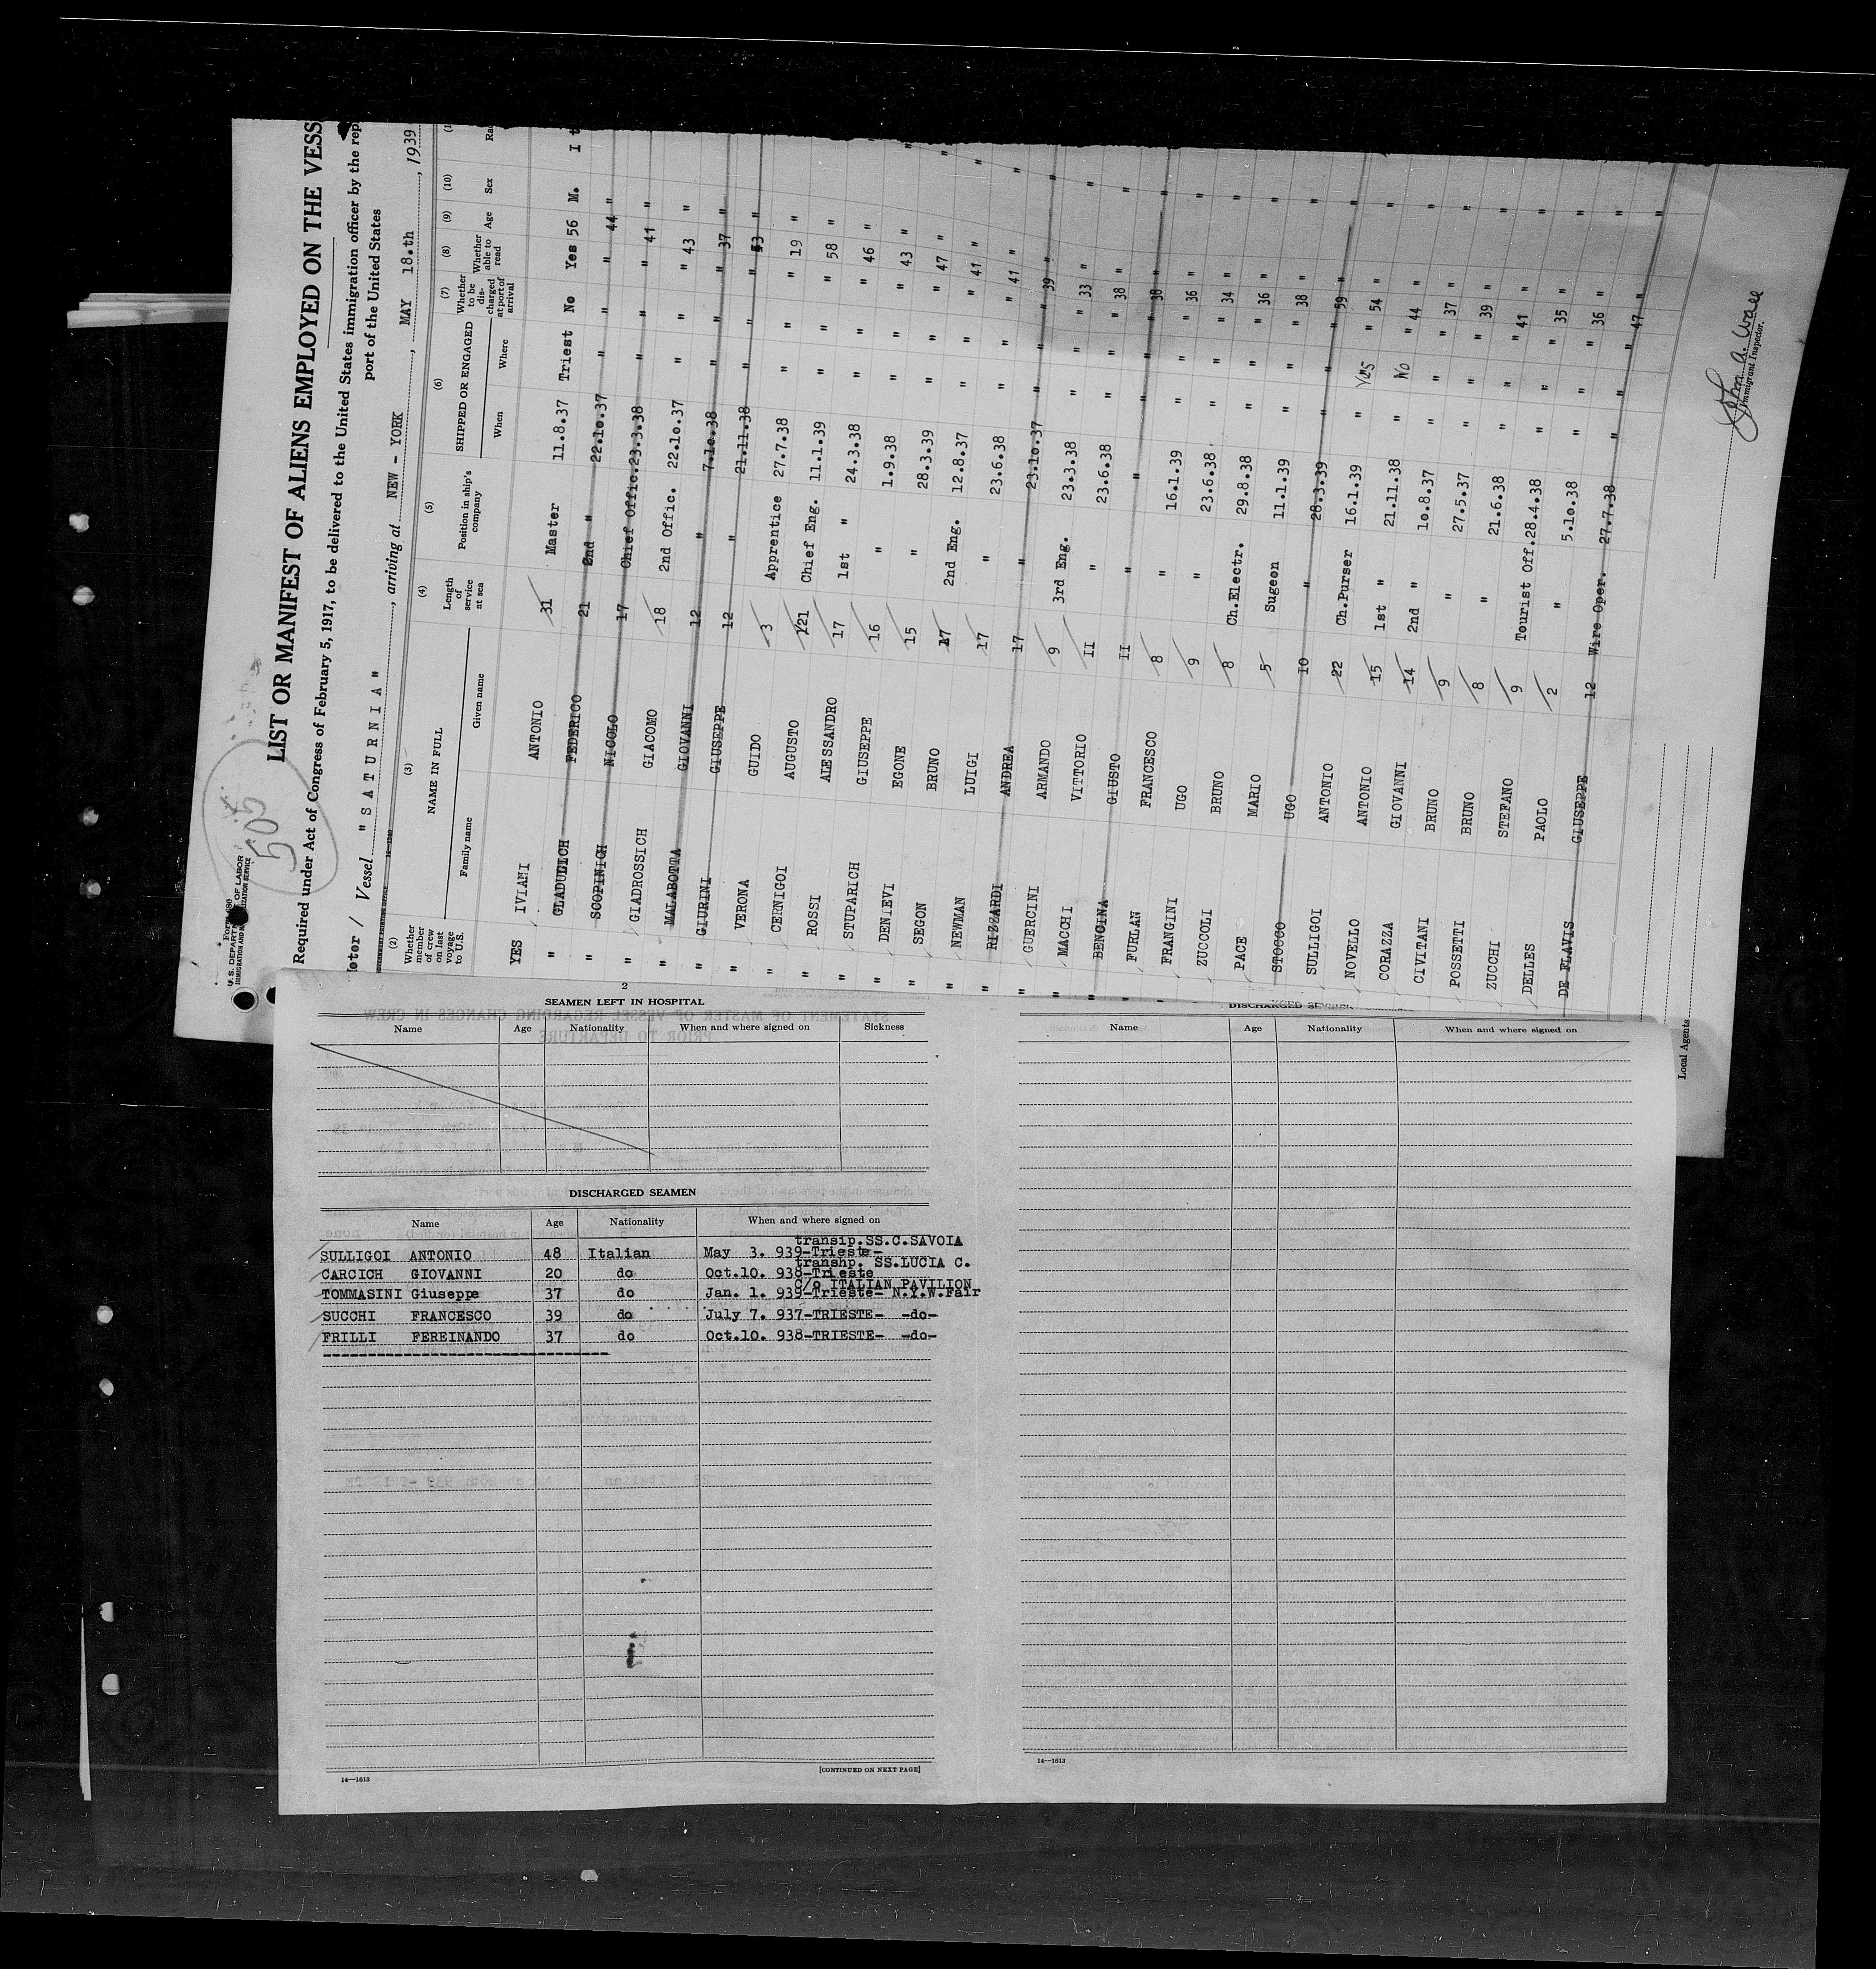 Form 680
U. S. DEPARTMENT OF LABOR
IMMIGRATION AND NATURALIZATION SERVICE
505
LIST OR MANIFEST OF ALIENS EMPLOYED ON THE VESS
Required under Act of Congress of February 5, 1917, to be delivered to the United States immigration officer by the rep
port of the United States
oter / Vessel "SATURNIA", arriving at NEW - YORK, MAY 18.th, 1939
(2) (3) (4) (5) (6) (7) (8) (9) (10)
Whether member of crew on last voyage to U.S. NAME IN FULL Family name Given name Length of service at sea Position in ship's company SHIPPED OR ENGAGED When Where Whether to be discharged at port of arrival Whether able to read Age Sex
YES IVIANI ANTONIO 31 Master 11.8.37 Triest No Yes 56 M. I t
" GLADULICH FEDERICO 21 2nd " 22.10.37 " " " 44 "
" SCOPINICH NICOLO 17 Chief Offic. 23.3.38 " " " 41 "
" GIADROSSICH GIACOMO 18 2nd Offic. 22.10.37 " " " 43 "
" MALABOTTA GIOVANNI 12 " 7.10.38 " " " 37 "
" GIURINI GIUSEPPE 12 " 21.11.38 " " " 43 "
" VERONA GUIDO 3 Apprentice 27.7.38 " " " 19 "
" CERNIGOI AUGUSTO 21 Chief Eng. 11.1.39 " " " 58 "
" ROSSI ALESSANDRO 17 1st " 24.3.38 " " " 46 "
" STUPARICH GIUSEPPE 16 " 1.9.38 " " " 43 "
" DENIEVI EGONE 15 28.3.39 " " " 47 "
" SEGON BRUNO 17 2nd Eng. 12.8.37 " " " 41 "
" NEWMAN LUIGI 17 " 23.6.38 " " " 41 "
" RIZZARDI ANDREA 17 " 23.10.37 " " " 39 "
" GUERCINI ARMANDO 9 3rd Eng. 23.3.38 " " " 33 "
" MACCHI VITTORIO II " 23.6.38 " " " 38 "
" BENCINA GIUSTO II " " " " " 38 "
" FURLAN FRANCESCO 8 " 16.1.39 " " " 36 "
FRANGINI UGO 9 " 23.6.38 " " " 34 "
ZUCCOLI BRUNO 8 Ch.Electr. 29.8.38 " " " 36 "
PACE MARIO 5 Sugeon 11.1.39 " " " 38 "
STOCCO UGO 10 " 28.3.39 " " " 59 "
SULLIGOI ANTONIO 22 Ch.Purser 16.1.39 " Yes " 54 "
NOVELLO ANTONIO 15 1st " 21.11.38 " No " 44 "
CORAZZA GIOVANNI 14 2nd " 10.8.37 " " " 37 "
CIVITANI BRUNO 9 " 27.5.37 " " " 39 "
POSSETTI BRUNO 8 " 21.6.38 " " " 41 "
ZUCCHI STEFANO 9 Tourist Off. 28.4.38 " " " 35 "
DELLES PAOLO 2 " 5.10.38 " " " 36 "
DE FLAVIS GIUSEPPE 12 Wire Oper. 27.7.38 " " " 47 "
John A. Wall
Immigrant Inspector.
Local Agents
2
SEAMEN LEFT IN HOSPITAL
Name Age Nationality When and where signed on Sickness
DISCHARGED SEAMEN
Name Age Nationality When and where signed on
transip.SS.C.SAVOIA
SULLIGOI ANTONIO 48 Italian May 3. 939-Trieste-
transhp. SS.LUCIA C.
CARCICH GIOVANNI 20 do Oct.10. 938-Trieste
C/o ITALIAN PAVILION
TOMMASINI Giuseppe 37 do Jan. 1. 939-Trieste- N.Y.W.Fair
SUCCHI FRANCESCO 39 do July 7. 937-TRIESTE- -do-
FRILLI FEREINANDO 37 do Oct.10. 938-TRIESTE- -do-
14—1613
[CONTINUED ON NEXT PAGE]
DISCHARGED SEAMEN
Name Age Nationality When and where signed on
14—1613